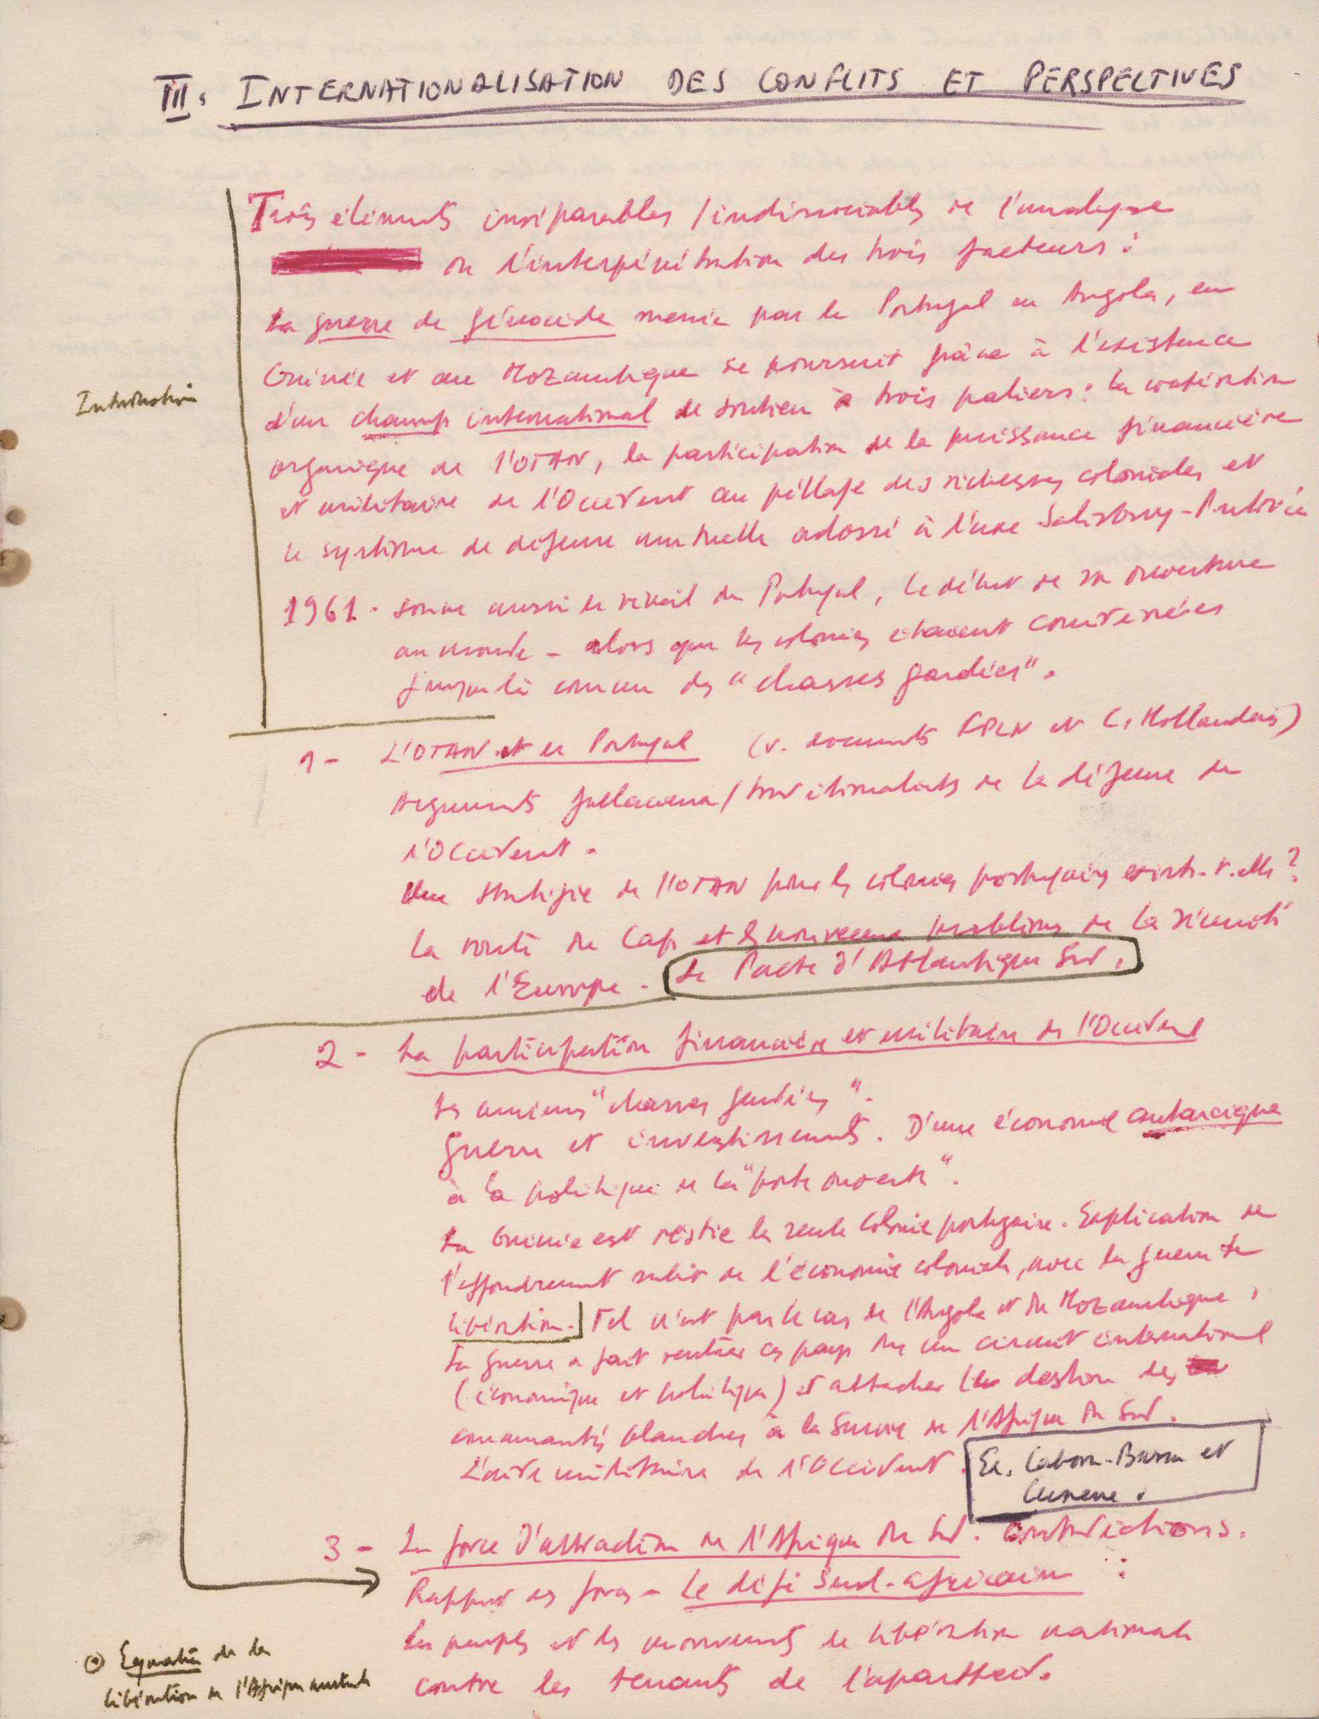 III. INTERNATIONALISATION DES CONFLITS ET PERSPECTIVES
Trois éléments inséparables / indissociables de l'analyse
ou l'interpénétration des trois facteurs :
La guerre de génocide menée par le Portugal en Angola, en
Guinée et au Mozambique se poursuit grâce à l'existence
Introduction
d'un champ international de soutien à trois paliers : la coopération
organique de l'OTAN, la participation de la puissance financière
et militaire de l'Occident au pillage des richesses coloniales et
le système de défense mutuelle adossé à l'axe Salisbury-Pretoria
1961. sonne aussi le réveil du Portugal, le début de son ouverture
au monde - alors que les colonies étaient considérées
jusque là comme des "chasses gardées".
1- L'OTAN et le Portugal (v. documents FPLN et C. Hollandais)
Arguments fallacieux / sur
de la défense de
l'Occident.
Une stratégie de l'OTAN pour les colonies portugaises existe-t-elle ?
La route du Cap et les nouveaux problèmes de la sécurité
de l'Europe. Le Pacte d'Atlantique Sud.
2- La participation financière et militaire de l'Occident
Les anciens "chasses gardées".
Guerre et investissements. D'une économie autarcique
à la politique de la "porte ouverte".
La Guinée est restée la seule colonie portugaise. Explication de
l'effondrement subit de l'économie coloniale, avec la guerre de
libération. Tel n'est pas le cas de l'Angola et du Mozambique,
La guerre a fait rentrer ces pays ds un circuit international
(économique et politique) et attacher le destin des
communautés blanches à la survie de l'Afrique du Sud.
L'aide militaire de l'Occident. Ex. Cabora-Bassa et
Cunene.
3- La force d'attraction de l'Afrique du Sud. Contradictions.
Rapport des forces - Le défi sud-africain :
Les peuples et les mouvements de libération nationale
contre les tenants de l'apartheid.
Equation de la
libération de l'Afrique australe